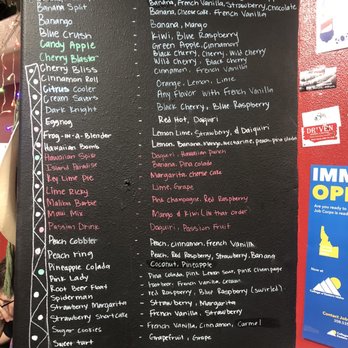 Banana Split - Banana, French Vanilla, Strawberry, Chocolate
Banango - Banana, Mango
Blue Crush - Kiwi, Blue Raspberry
Candy Apple - Green Apple, Cinnamon
Cherry Blaster - Black Cherry, Cherry, Wild Cherry
Cherry Bliss - Wild Cherry, Black Cherry
Cinnamon Roll - Cinnamon, French Vanilla
Citrus Cooler - Orange, Lemon, Lime
Cream Savers - Any Flavor with French Vanilla
Dark Knight - Black Cherry, Blue Raspberry
Eggnog - Red Hot, Daquiri
Frog-in-a-Blender - Lemon Lime, Strawberry, & Daiquiri
Hawaiian Bomb - Lemon, Banana, Mango, Nectarine, peach, pina colada
Hawaiian Spice - Daquiri, Hawaiian punch
Island Paradise - Banana, Pina colada
Key Lime Pie - Margarita, cheese cake
Lime Ricky - Lime, Grape
Malibu Barbie - Pink champagne, Red Raspberry
Maui Mix - Mango & Kiwi (in that order)
Passion Drink - Daquiri, Passion Fruit
Peach Cobbler - Peach, cinnamon, French Vanilla
Peach ring - Peach, Red Raspberry, Strawberry, Banana
Pineapple Colada - Coconut, Pineapple
Pink Lady - Pina Colada, Pink Lemon Sour, Pink Champagne
Root Beer Float - Rootbeer, French Vanilla, Cream
Spiderman - red Raspberry, Blue Raspberry (swirled)
Strawberry Margarita - Strawberry, Margarita
Strawberry Shortcake - French Vanilla, Strawberry
Sugar cookies - French Vanilla, Cinnamon, Carmel
Sweet tart - Grapefruit, Grape
DRIVEN
IMM
OPE
Are you ready to
Job Corps is
Contact